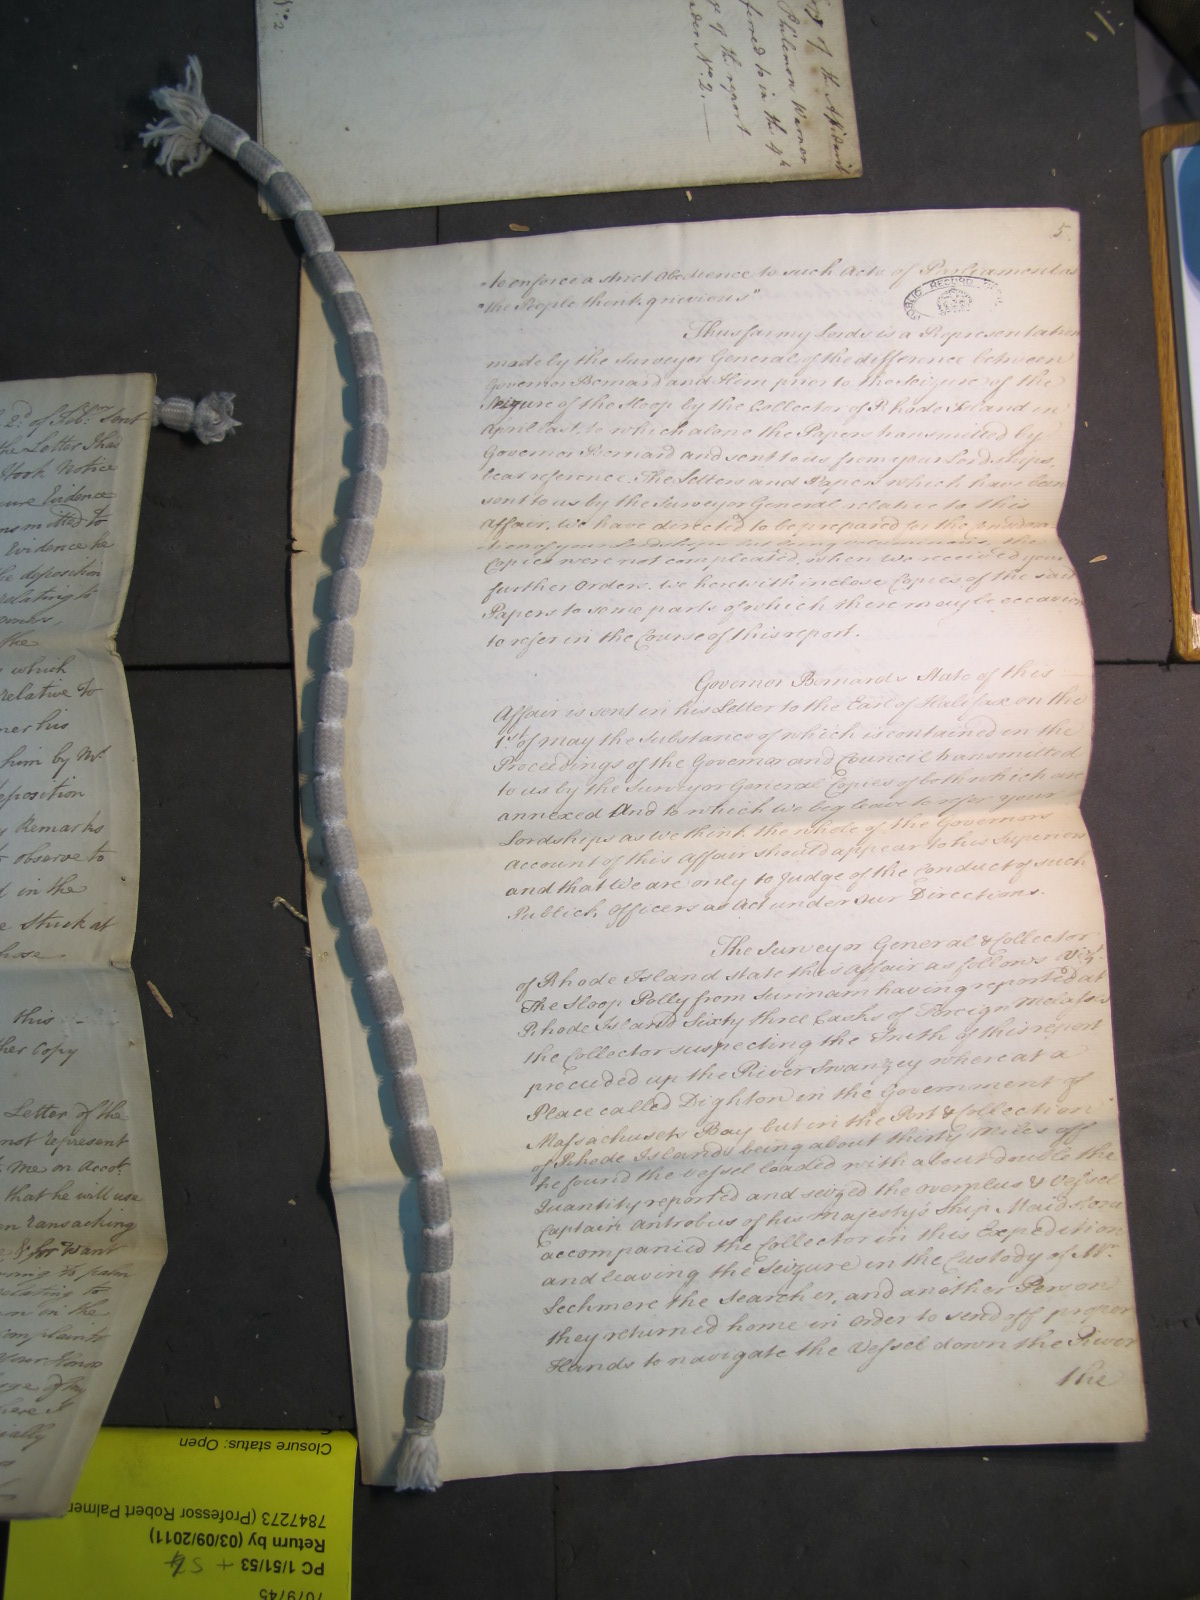 5.
to enforce a strict Obedience to such Acts of Parliament as
"the People think grievious"
PUBLIC RECORD
Thus far my Lords is a Representation
made by the Surveyor General of the difference between
Governor Bernard and Him prior to the Seizure of the
of the Sloop by the Collector of Rhode Island in
April last, to which alone the Papers transmitted by
Governor Bernard and sent to us from your Lordships,
have reference. The Letters and Papers which have been
sent to us by the Surveyor General relative to this
Affair, We have directed to be prepared for the
tion of your Lordships but the
Copies were not compleated, when We received your
further Orders. We herewith inclose Copies of the said
Papers to some parts of which there may be occasion
to refer in the Course of this report.
Governor Bernard's State of this
Affair is sent in his Letter to the Earl of Halifax on the
1st of May the Substance of which is contained in the
Proceedings of the Governor and Council transmitted
to us by the Surveyor General Copies of both which are
annexed And to which We beg leave to refer your
Lordships as We think the whole of the Governors
account of this Affair should appear to his Superiors
and that We are only to Judge of the Conduct of such
Publick Officers as Act under our Directions.
The Surveyor General & Collector
of Rhode Island state this affair as follows Vizt.
The Sloop Polly from Surinam having reported at
Rhode Island Sixty three Casks of Foreign Melasses
the Collector suspecting the Truth of this report
proceeded up the River Swanzey where at a
Place called Dighton in the Government of
Massachusets Bay but in the Port & Collection
of Rhode Island being about thirty Miles off
he found the Vessel loaded with about double the
Quantity reported and seized the overplus & Vessel
Captain Antrobus of his Majesty's Ship Maidstone
accompanied the Collector in this Expedition
and leaving the Seizure in the Custody of Mr.
Lechmere the Searcher, and another Person
they returned home in order to send off proper
Hands to navigate the Vessel down the River
the
No. 2
of the Affidavit
Philemon Warner
referred to in the 4th
of the report
under No. 2.
2d. of Feb. Sent
the Letter I had
took Notice
Evidence
transmitted to
Evidence he
the deposition
relating to
the
which
relative to
his
him by Mr.
deposition
Remarks
observe to
in the
Stuck at
those
this
Copy
Letter of the
not represent
me on Accot.
that he will use
transacting
& for Want
to
relating to
in the
complaint
your
of my
here I
Closure status: Open
7847273 (Professor Robert Palmer
Return by (03/09/2011)
PC 1/51/53 + 54
7079745